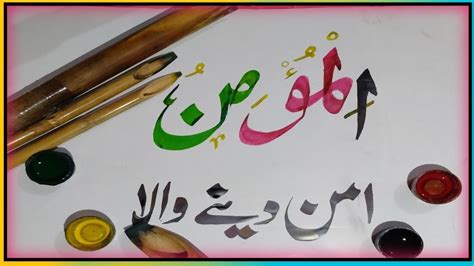 المؤمنُ
امن دینے والا